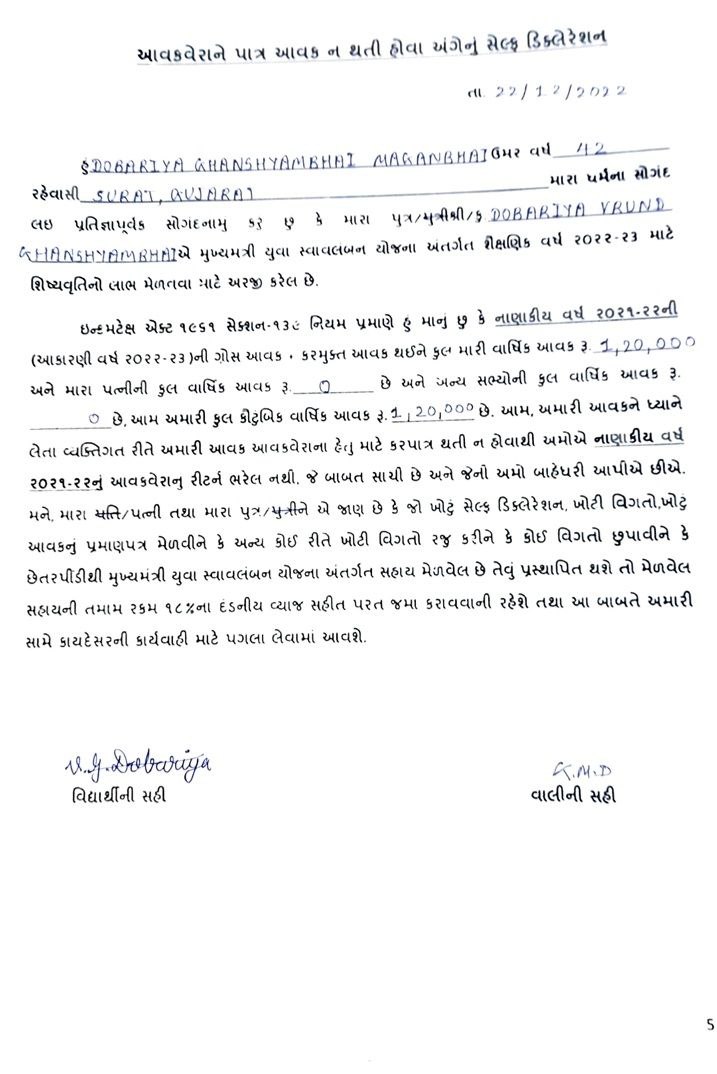 આવકવેરાને પાત્ર આવક ન થતી હોવા અંગેનું સેલ્ફ ડિક્લેરેશન
તા. 22/12/2022
હું DOBARIYA GHANSHYAMBHAI MAGANBHAI ઉમર વર્ષ 42
રહેવાસી SURAT, GUJARAT મારા ધર્મના સોગંદ
લઇ પ્રતિજ્ઞાપૂર્વક સોગદનામુ કરૂ છુ કે મારા પુત્ર/પુત્રીશ્રી/કુ DOBARIYA VRUND
GHANSHYAMBHAI એ મુખ્યમંત્રી યુવા સ્વાવલબન યોજના અંતર્ગત શૈક્ષણિક વર્ષ ૨૦૨૨-૨૩ માટે
શિષ્યવૃતિનો લાભ મેળતવા માટે અરજી કરેલ છે.
ઇન્કમટેક્ષ એક્ટ ૧૯૬૧ સેક્શન-૧૩૯ નિયમ પ્રમાણે હુ માનું છુ કે નાણાકીય વર્ષ ૨૦૨૧-૨૨ની
(આકારણી વર્ષ ૨૦૨૨-૨૩)ની ગ્રોસ આવક - કરમુક્ત આવક થઈને કુલ મારી વાર્ષિક આવક રૂ. 1,20,000
અને મારા પત્નીની કુલ વાર્ષિક આવક રૂ. 0 છે અને અન્ય સભ્યોની કુલ વાર્ષિક આવક રૂ.
0 છે, આમ અમારી કુલ કૌટુંબિક વાર્ષિક આવક રૂ. 1,20,000 છે. આમ, અમારી આવકને ધ્યાને
લેતા વ્યક્તિગત રીતે અમારી આવક આવકવેરાના હેતુ માટે કરપાત્ર થતી ન હોવાથી અમોએ નાણાકીય વર્ષ
૨૦૨૧-૨૨નું આવકવેરાનુ રીટર્ન ભરેલ નથી. જે બાબત સાચી છે અને જેનો અમો બાહેધરી આપીએ છીએ.
મને, મારા પતિ/પત્ની તથા મારા પુત્ર/પુત્રીને એ જાણ છે કે જો ખોટું સેલ્ફ ડિક્લેરેશન, ખોટી વિગતો,ખોટુ
આવકનું પ્રમાણપત્ર મેળવીને કે અન્ય કોઈ રીતે ખોટી વિગતો રજુ કરીને કે કોઈ વિગતો છુપાવીને કે
છેતરપીંડીથી મુખ્યમંત્રી યુવા સ્વાવલંબન યોજના અંતર્ગત સહાય મેળવેલ છે તેવું પ્રસ્થાપિત થશે તો મેળવેલ
સહાયની તમામ રકમ ૧૮%ના દંડનીય વ્યાજ સહીત પરત જમા કરાવવાની રહેશે તથા આ બાબતે અમારી
સામે કાયદેસરની કાર્યવાહી માટે પગલા લેવામાં આવશે.
V.G.Dobariya
વિદ્યાર્થીની સહી
G.M.D
વાલીની સહી
5